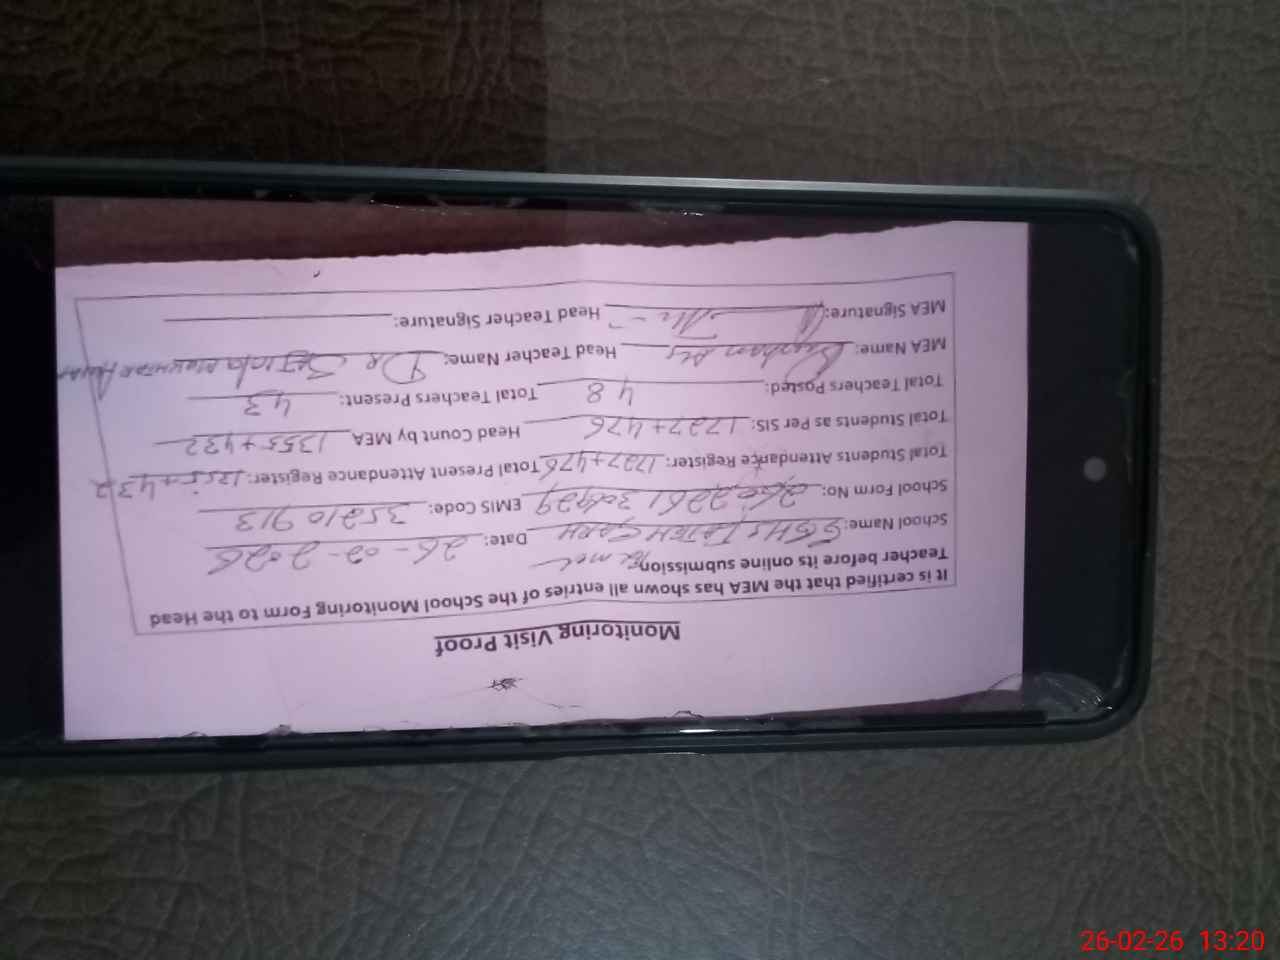 Monitoring Visit Proof
It is certified that the MEA has shown all entries of the School Monitoring Form to the Head
Teacher before its online submission.
School Name: GGHS FATEH GARH Date: 26-02-2026
School Form No: EMIS Code: 35210913
Total Students Attendance Register: 1727+476 Total Present Attendance Register: 1355+432
Total Students as Per SIS: 1727+476 Head Count by MEA 1355+432
Total Teachers Posted: 48 Total Teachers Present: 43
MEA Name: Head Teacher Name: DR
MEA Signature: Head Teacher Signature:
26-02-26 13:20